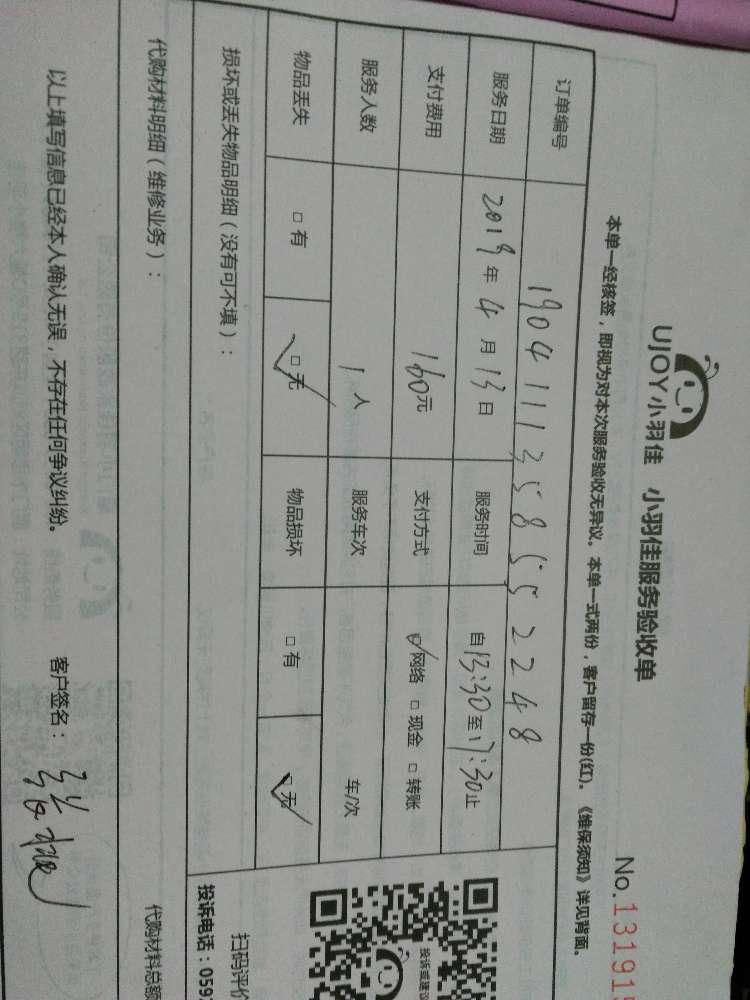 UJOY小羽佳 小羽佳服务验收单
No.131915
本单一经核签，即视为对本次服务验收无异议。本单一式两份，客户留存一份(红)。《维保须知》详见背面。
订单编号 1904111358552248
服务日期 2019年4月13日 服务时间 自13:30至17:30止
支付费用 160元 支付方式 网络 □现金 □转账
服务人数 1人 服务车次 车/次
物品丢失 □有 □无 物品损坏 □有 □无
损坏或丢失物品明细（没有可不填）：
投诉或建议
扫码评价
投诉电话：059
代购材料明细（维修业务）：
代购材料总额
以上填写信息已经本人确认无误，不存在任何争议纠纷。 客户签名：